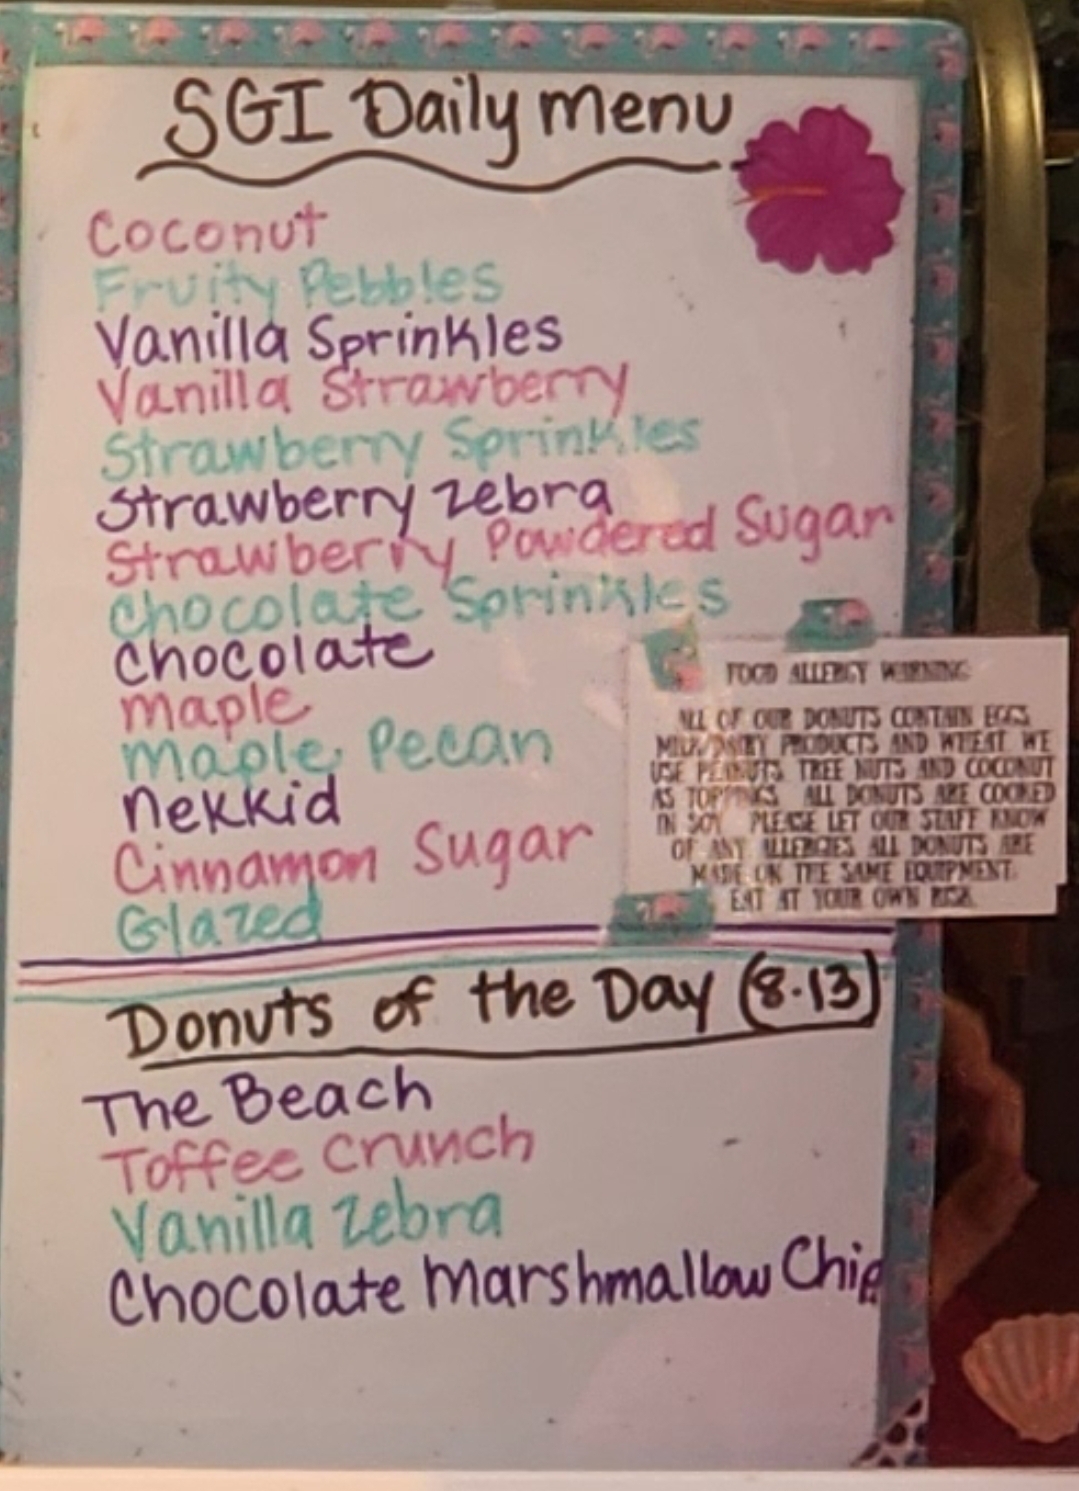 SGI Daily menu
Coconut
Fruity Pebbles
Vanilla Sprinkles
Vanilla Strawberry
Strawberry Sprinkles
Strawberry Zebra
Strawberry Powdered Sugar
Chocolate Sprinkles
Chocolate
Maple
Maple Pecan
Nekkid
Cinnamon Sugar
Glazed
FOOD ALLERGY WARNING
ALL OF OUR DONUTS CONTAIN EGGS
MILK/DAIRY PRODUCTS AND WHEAT. WE
USE PEANUTS, TREE NUTS AND COCONUT
AS TOPPINGS. ALL DONUTS ARE COOKED
IN SOY. PLEASE LET OUR STAFF KNOW
OF ANY ALLERGIES. ALL DONUTS ARE
MADE ON THE SAME EQUIPMENT.
EAT AT YOUR OWN RISK.
Donuts of the Day (8.13)
The Beach
Toffee Crunch
Vanilla Zebra
Chocolate Marshmallow Chip